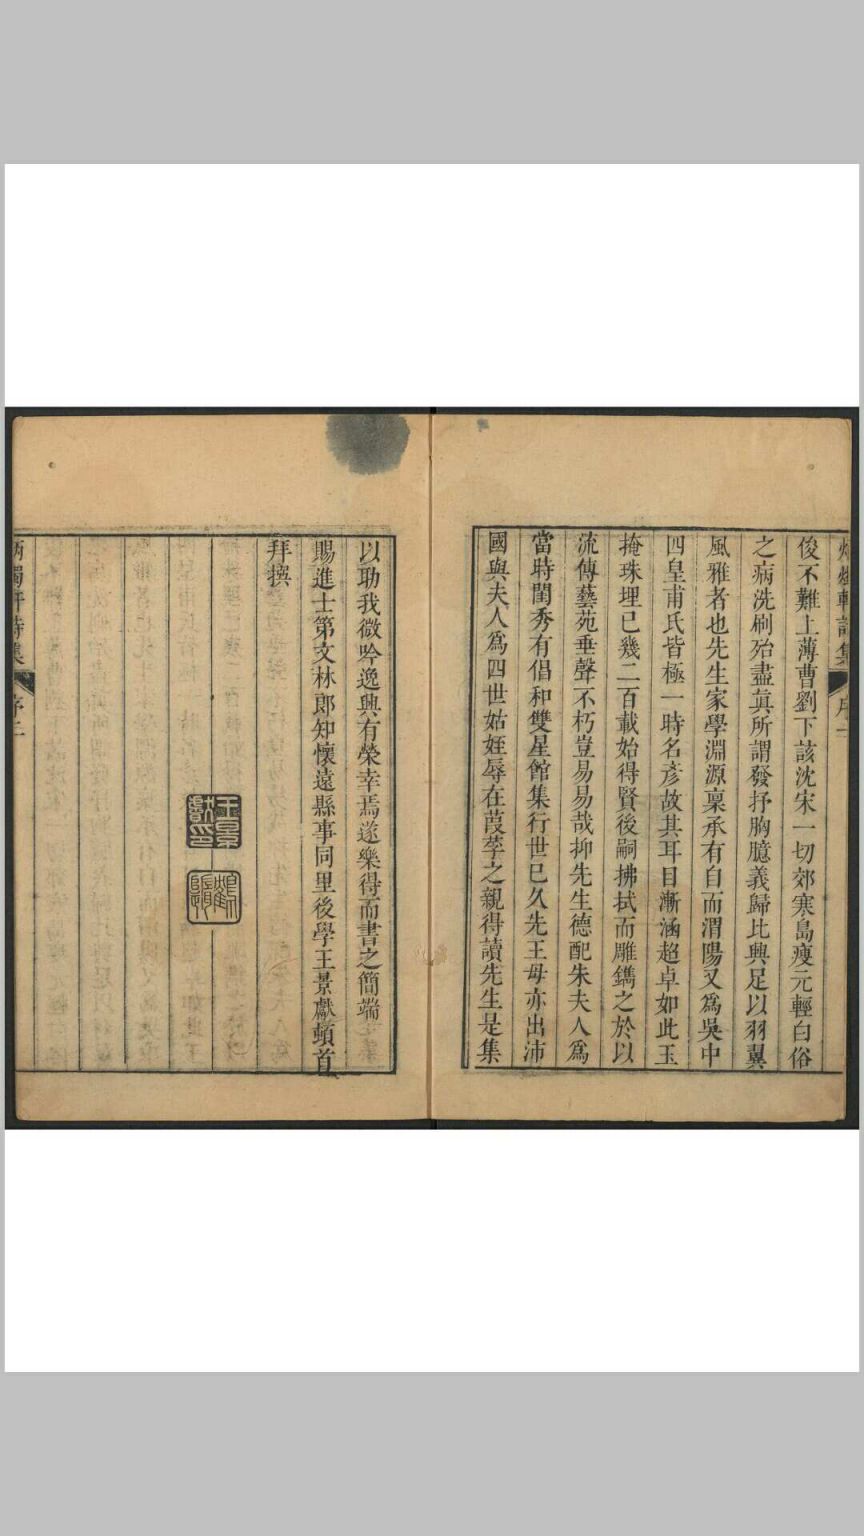 俊不難上薄曹劉下該沈宋一切郊寒島瘦元輕白俗
之病洗刷殆盡眞所謂發抒胸臆義歸比興足以羽翼
風雅者也先生家學淵源稟承有自而渭陽又爲吳中
四皇甫氏皆極一時名彥故其耳目漸涵超卓如此玉
掩珠埋已幾二百載始得賢後嗣拂拭而雕鐫之於以
流傳藝苑垂聲不朽豈易易哉抑先生德配朱夫人爲
當時閨秀有倡和雙星館集行世已久先王母亦出沛
國與夫人爲四世姑姪辱在葭莩之親得讀先生是集
以助我微吟逸興有榮幸焉遂樂得而書之簡端
賜進士第文林郎知懷遠縣事同里後學王景獻頓首
拜撰
王景獻印
炳燭軒詩集
序二